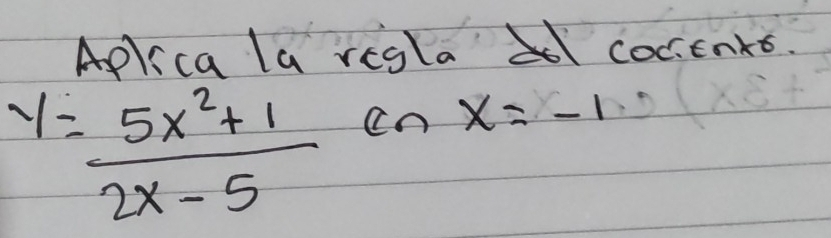 Aplica la regla del cociente.
Y = 5x²+1 en x = -1.
2x - 5